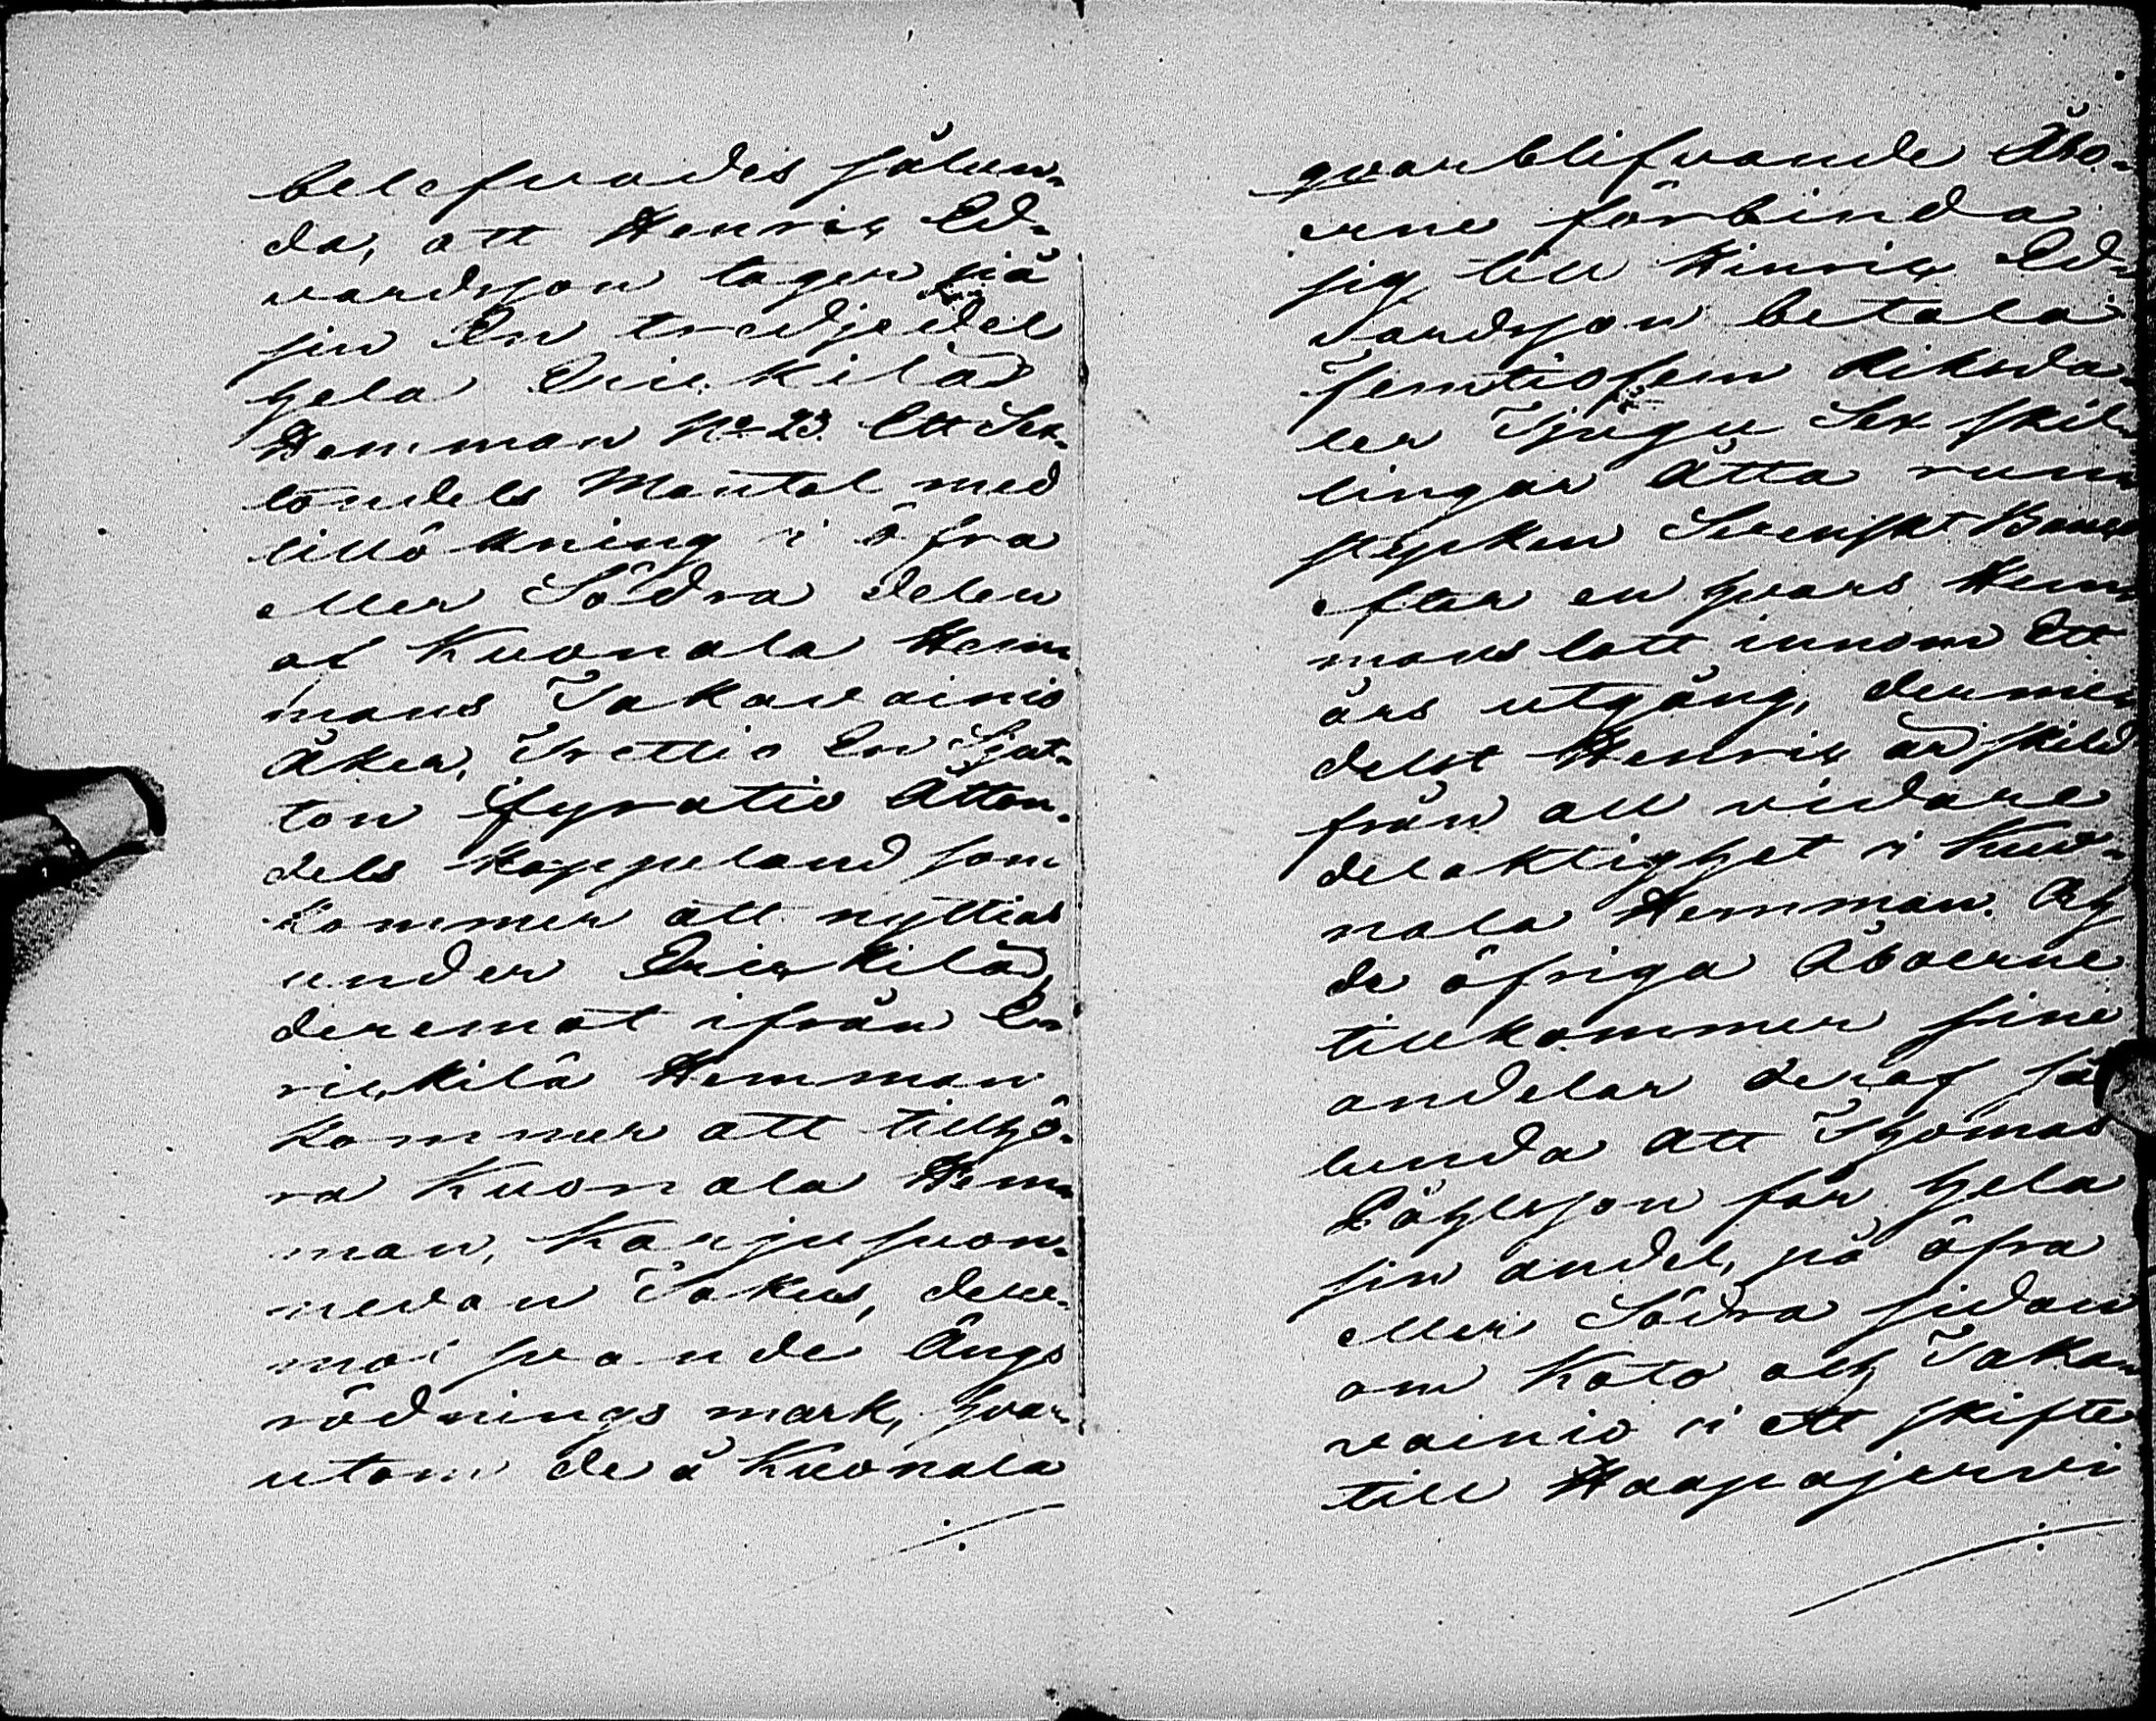 belefvades sålun-
da, att Henric Ed-
vardsson tager på
sin En tredjedel
hela Erickilä
Hemman No 23. Ett Sex-
tondels Mantal med
tillökning i öfra
eller Södra delen
af Kuonala Hem-
mans Takavainio
Åker, Trettio En Sjut-
ton fyratio Åtton-
dels kappeland som
kommer att nyttias
under Erickilä,
deremot ifrån E-
rickilä Hemman
kommer att tillhö-
ra Kuonala Hem-
man, Karjusuon-
nevan Takus, dere-
mot svarande Ängs
rödnings mark, hvar-
utom de å Kuonala
qvarblifvande Åbo-
erne förbinda
sig till Hinric Ed-
vardsson betala
femtiofem Riksda-
ler Tjugu Sex skil-
lingar Åtta run-
stycken Svenskt Banco
efter en hvars Hem-
mans lott innom Ett
års utgång, derme-
delst Henric är skild
från all vidare
delaktighet i Kuo-
nala Hemman. Och
de öfriga Åboerne
tillkommer sine
andelar deraf så
lunda att Thomas
Påhlsson får hela
sin andel, på öfra
eller Södra sidan
om Koto och Taka-
vainio i ett skifte
till Haapajervi